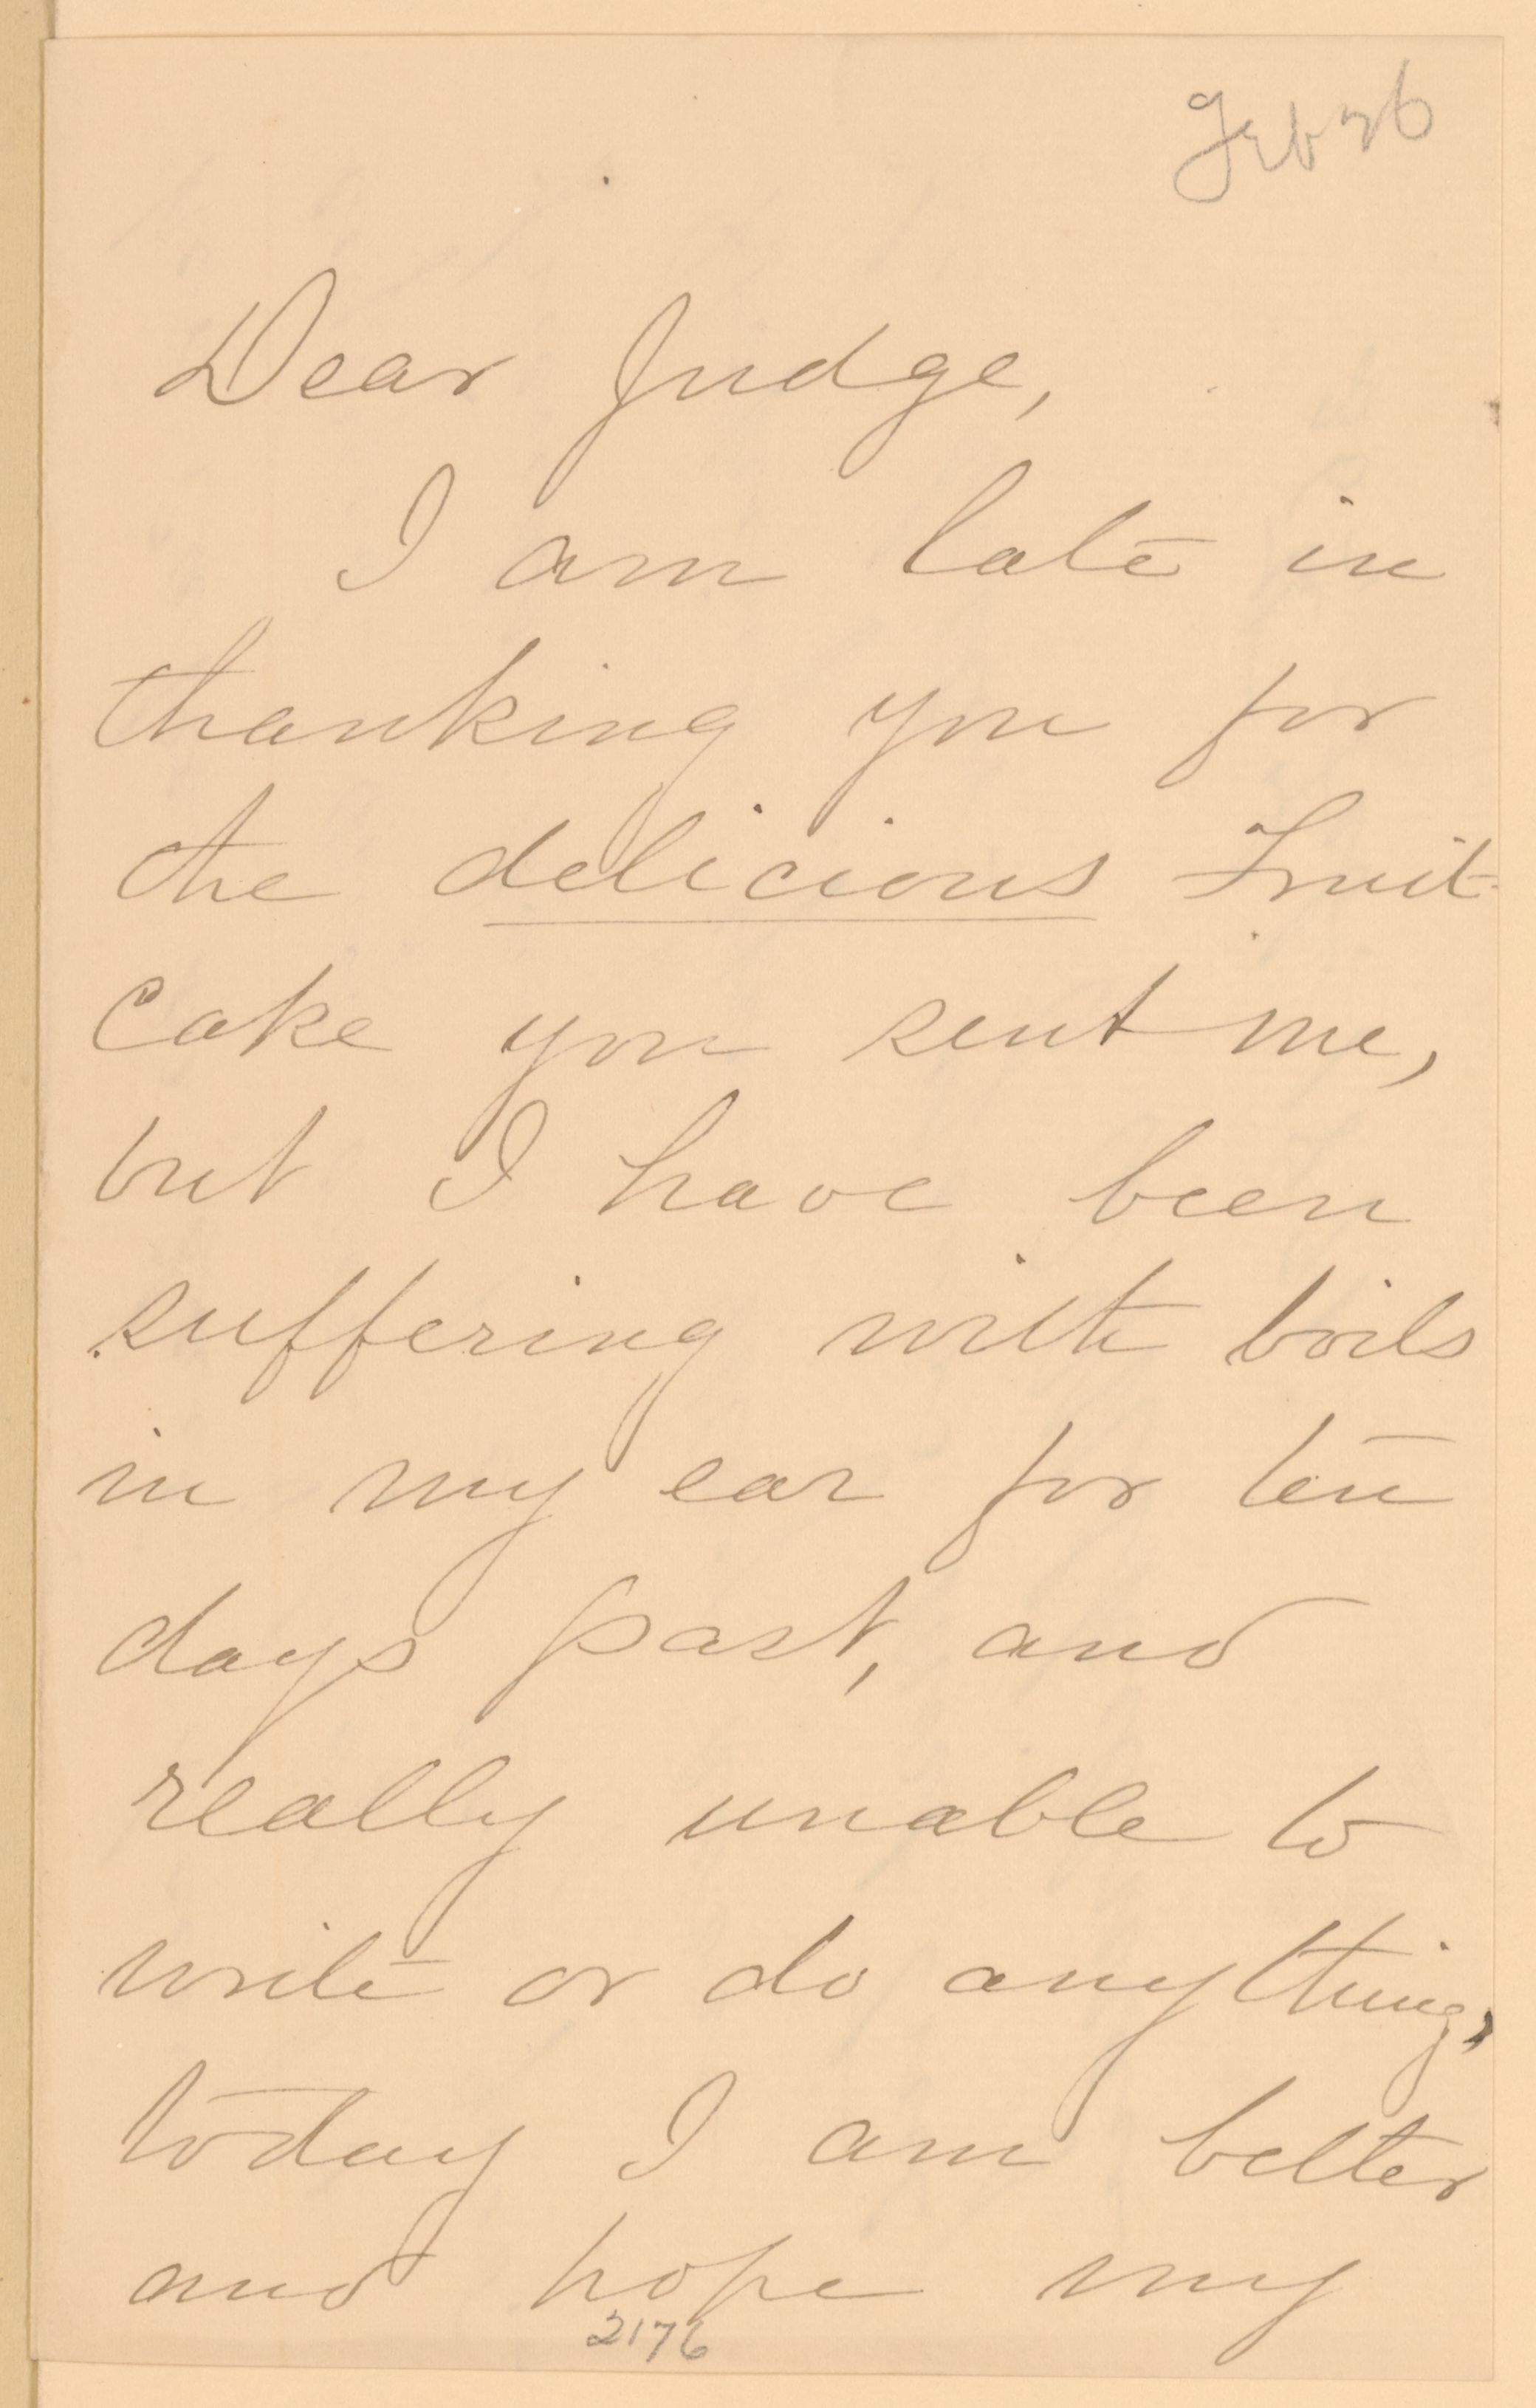 Feb 26
Dear Judge,
I am late in
thanking you for
the delicious Fruit
Cake you sent me,
but I have been
suffering with boils
in my ear for ten
days past, and
really unable to
write or do anything,
today I am better
and hope my
2176